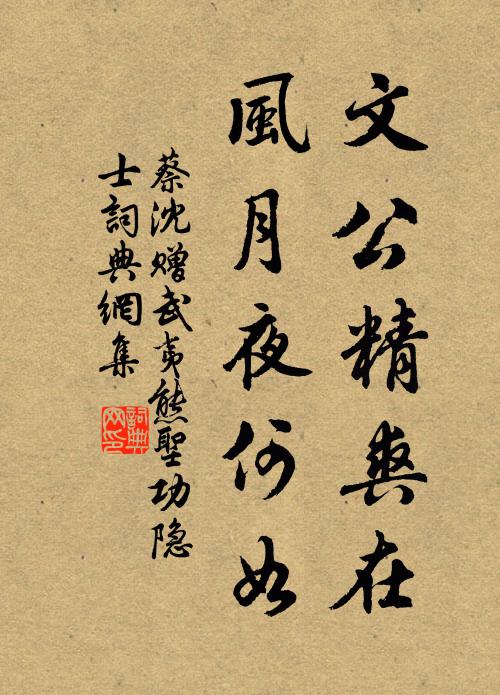 文公精爽在
風月夜何如
蔡沈贈武夷熊聖功隐
士詞典網集
詞典網印